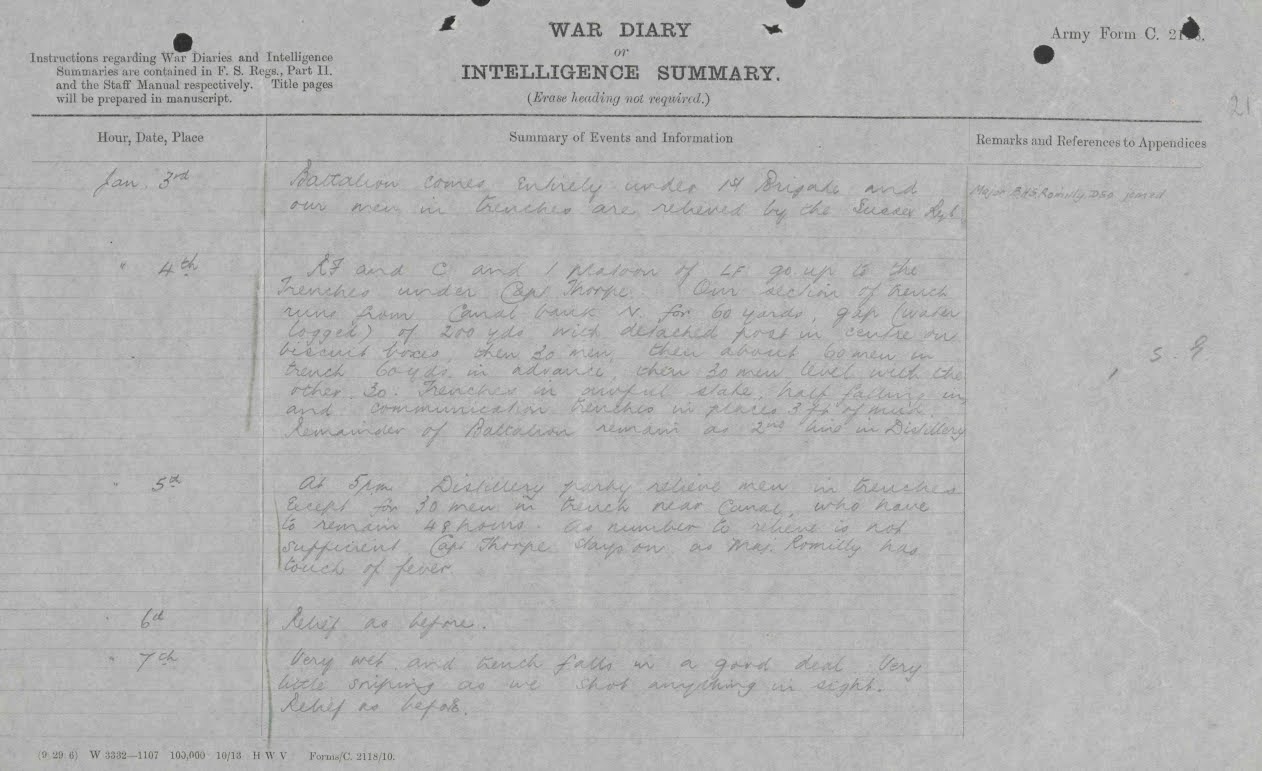 WAR DIARY
or
INTELLIGENCE SUMMARY.
(Erase heading not required.)
Army Form C. 2118.
Instructions regarding War Diaries and Intelligence
Summaries are contained in F. S. Regs., Part II.
and the Staff Manual respectively. Title pages
will be prepared in manuscript.
21
Hour, Date, Place
Summary of Events and Information
Remarks and References to Appendices
Jan. 3rd
Battalion comes entirely under 1st Brigade and
our men in trenches are relieved by the Sussex Regt
Major B.H.S. Romilly, DSO joined
" 4th
RF and C and 1 platoon of LF go up to the
Trenches under Capt Thorpe. Our section of trench
runs from Canal bank N. for 60 yards, gap (water
logged) of 200 yds with detached post in centre on
biscuit boxes, then 30 men, then about 60 men in
trench 60 yds in advance, then 30 men level with the
other 30. Trenches in awful state, half falling in
and communication trenches in places 3 ft of mud.
Remainder of Battalion remain as 2nd line in Distillery
S. 9.
" 5th
At 5pm Distillery party relieve men in trenches
Except for 30 men in trench near Canal, who have
to remain 48 hours. as number to relieve is not
sufficient. Capt Thorpe stays on as Maj. Romilly has
touch of fever.
" 6th
Relief as before.
" 7th
Very wet and trench falls in a good deal. Very
little sniping as we shot anything in sight.
Relief as before.
(9 29 6) W 3332—1107 100,000 10/13 H W V Forms/C. 2118/10.